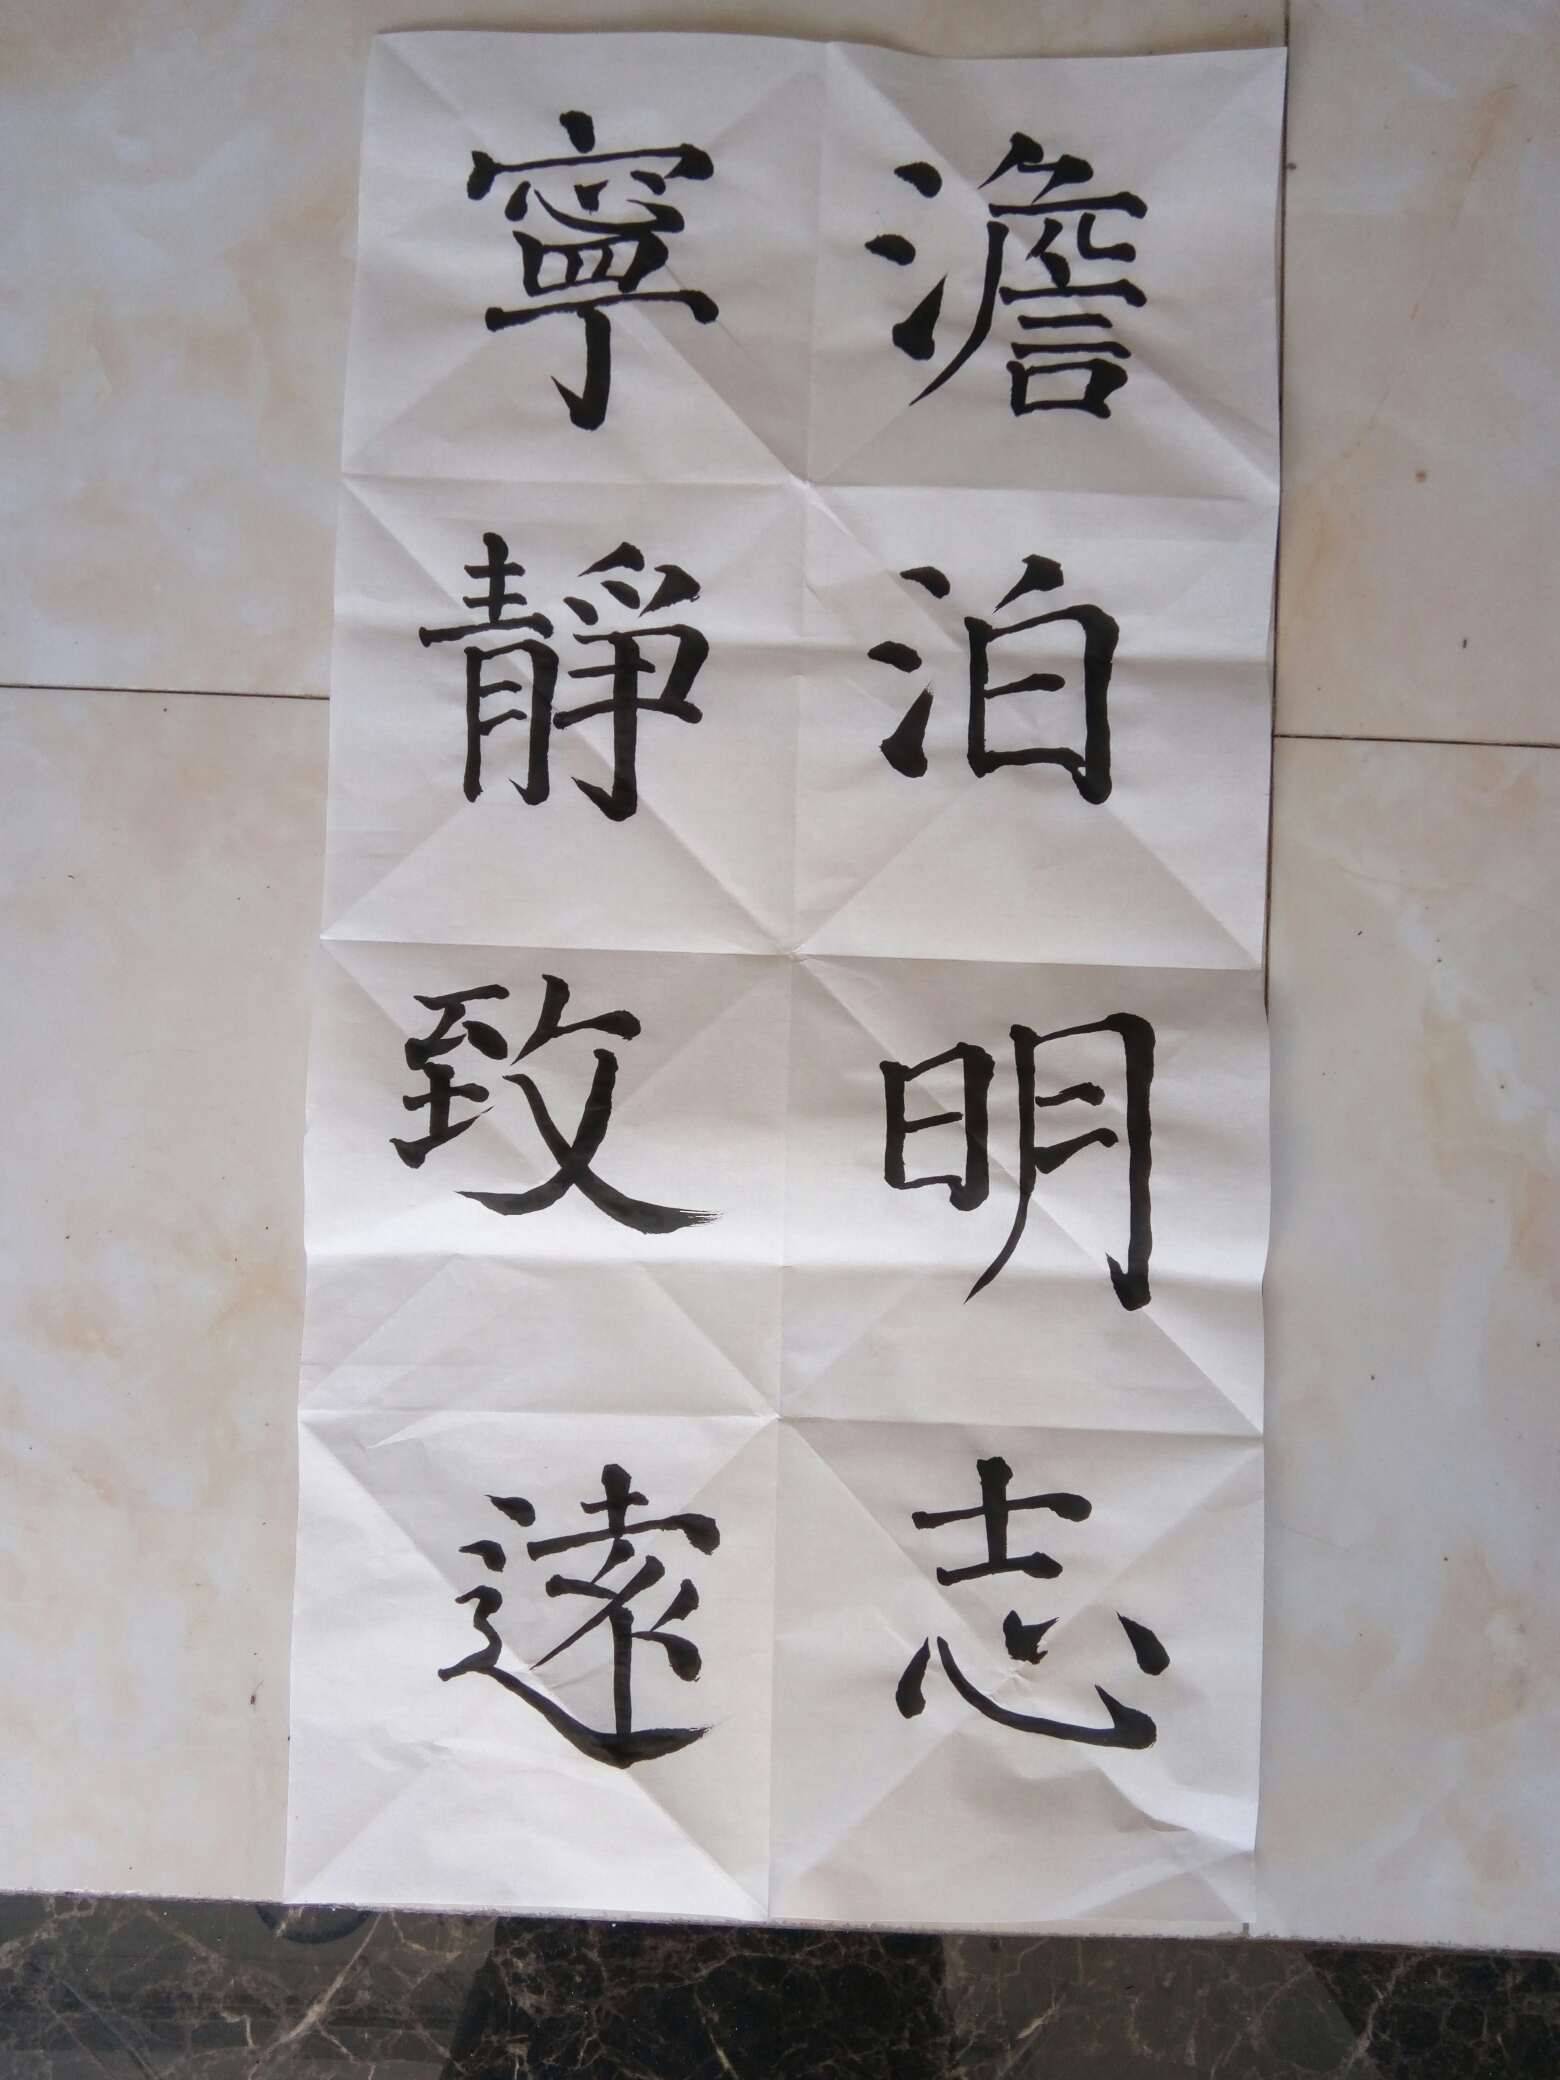 澹泊明志
寧靜致遠